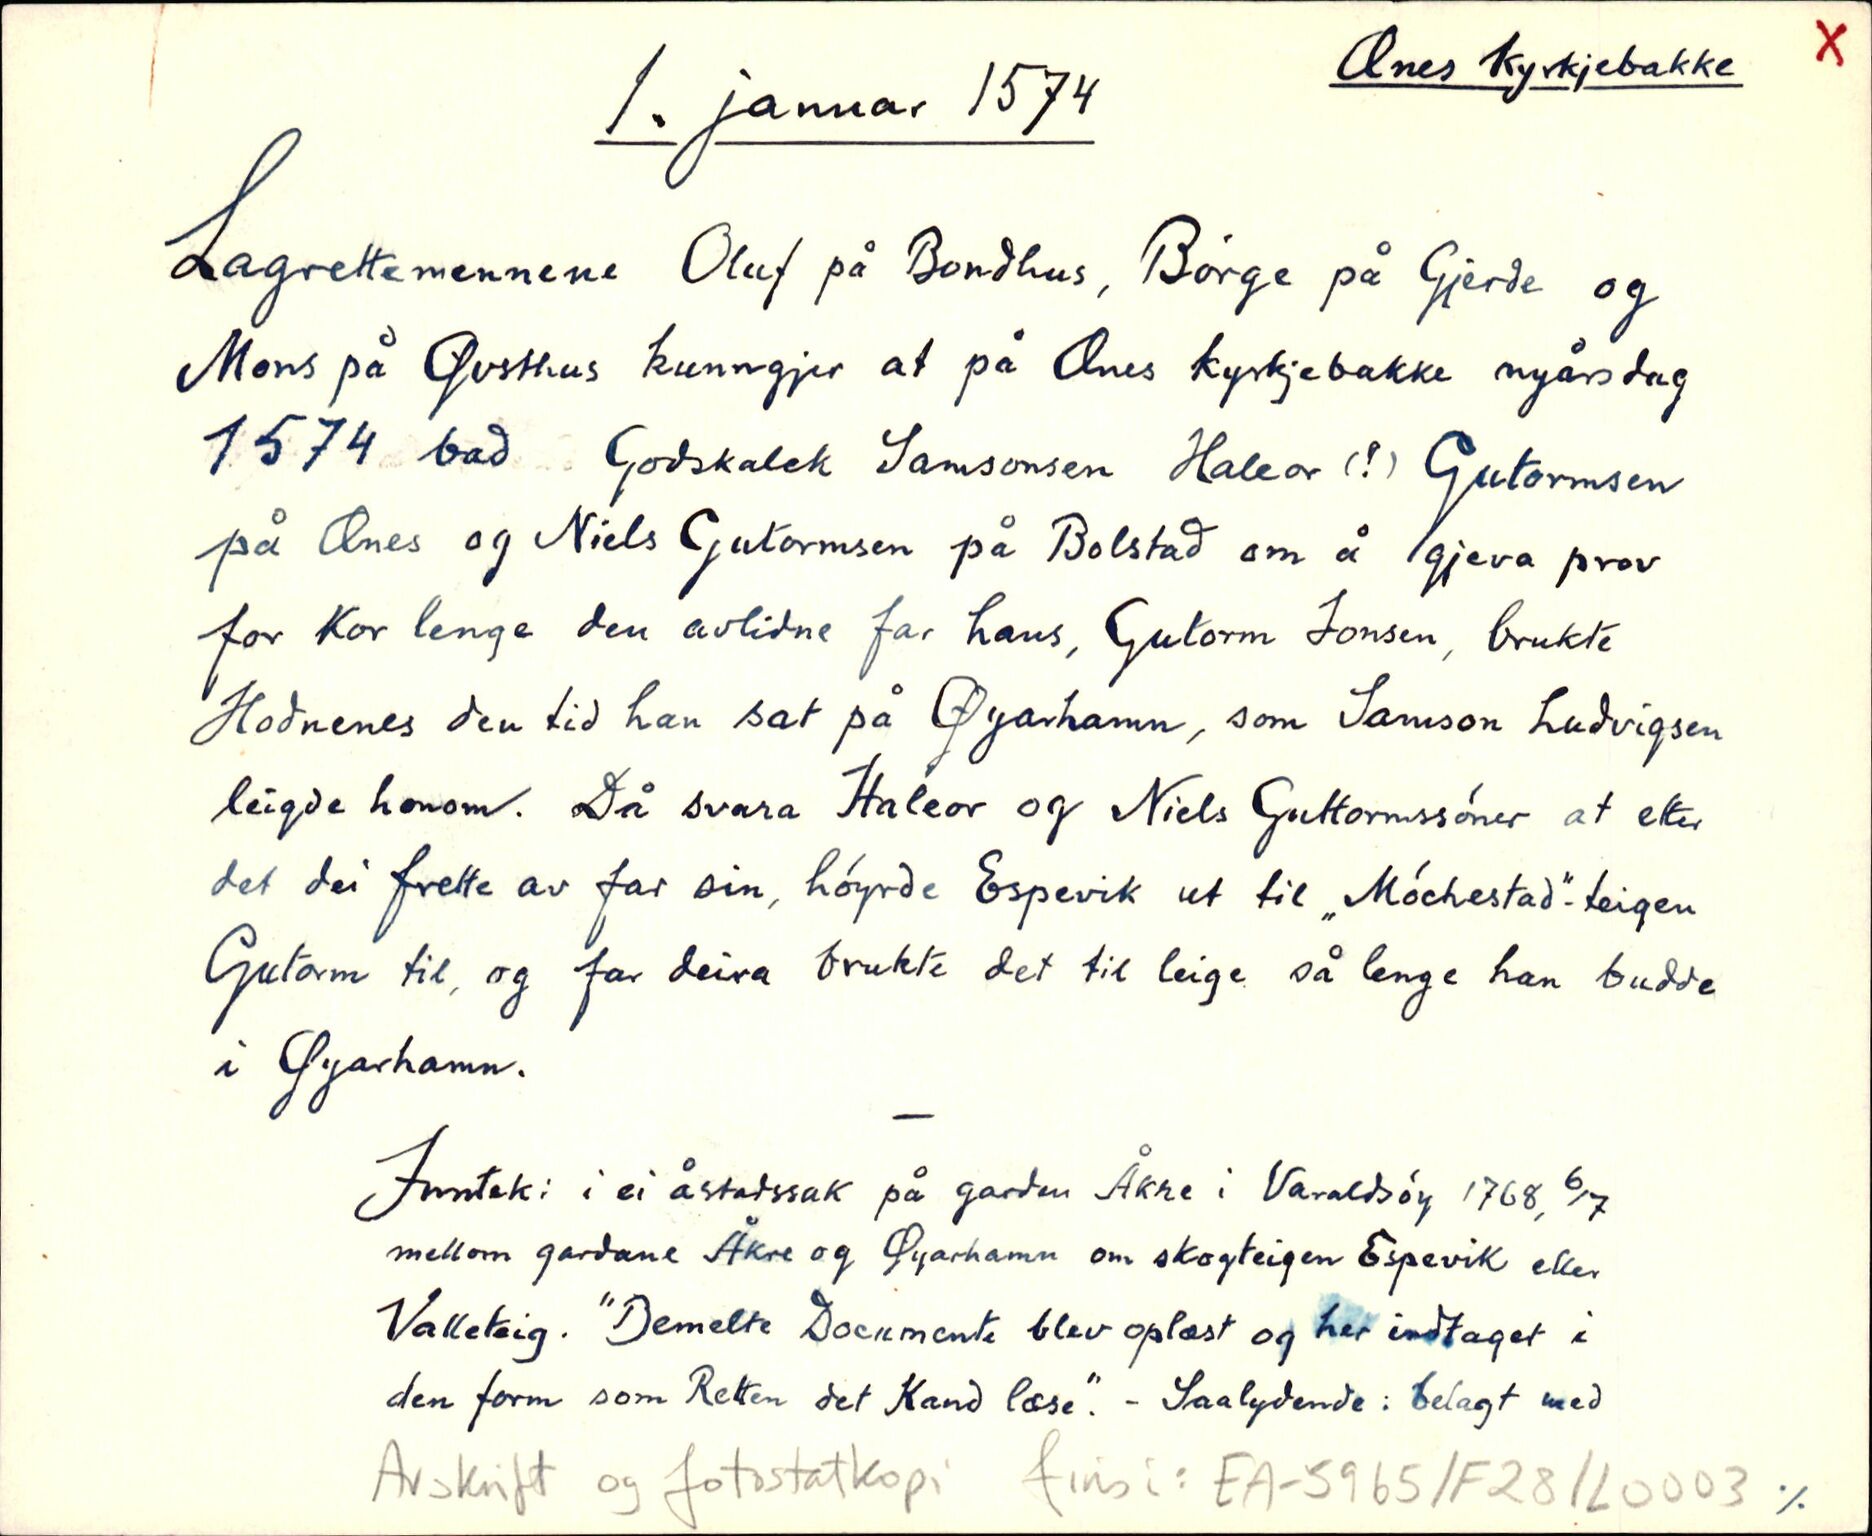 Ænes Kyrkjebakke X
1. januar 1574
Lagrettemennene Oluf på Bondhus, Børge på Gjerde og
Mons på Øvsthus kunngjer at på Ænes kyrkjebakke nyårsdag
1574 bad Godskalck Samsonsen Haleor (!) Gutormsen
på Ænes og Niels Gutormsen på Bolstad om å gjeva prov
for kor lenge den avlidne far hans, Gutorm Jonsen, brukte
Hodnenes den tid han sat på Øyarhamn, som Samson Ludvigsen
leigde honom. Då svara Haleor og Niels Guttormssóner at etter
det dei frette av far sin, hóyrde Espevik ut til „Móchestad"-teigen
Gutorm til, og far deira brukte det til leige så lenge han budde
i Øyarhamn.
—
Inntek: i ei åstadssak på garden Åkre i Varaldsóy 1768, 6/7
mellom gardane Åkre og Øyarhamn om skogteigen Espevik eller
Valleteig. "Bemelte Documente blev oplæst og her indtaget i
den form som Retten det Kand læse". - Saalydende: belagt med
Avskrift og fotostatkopi fins i: EA-5965/F28/L0003 ./.